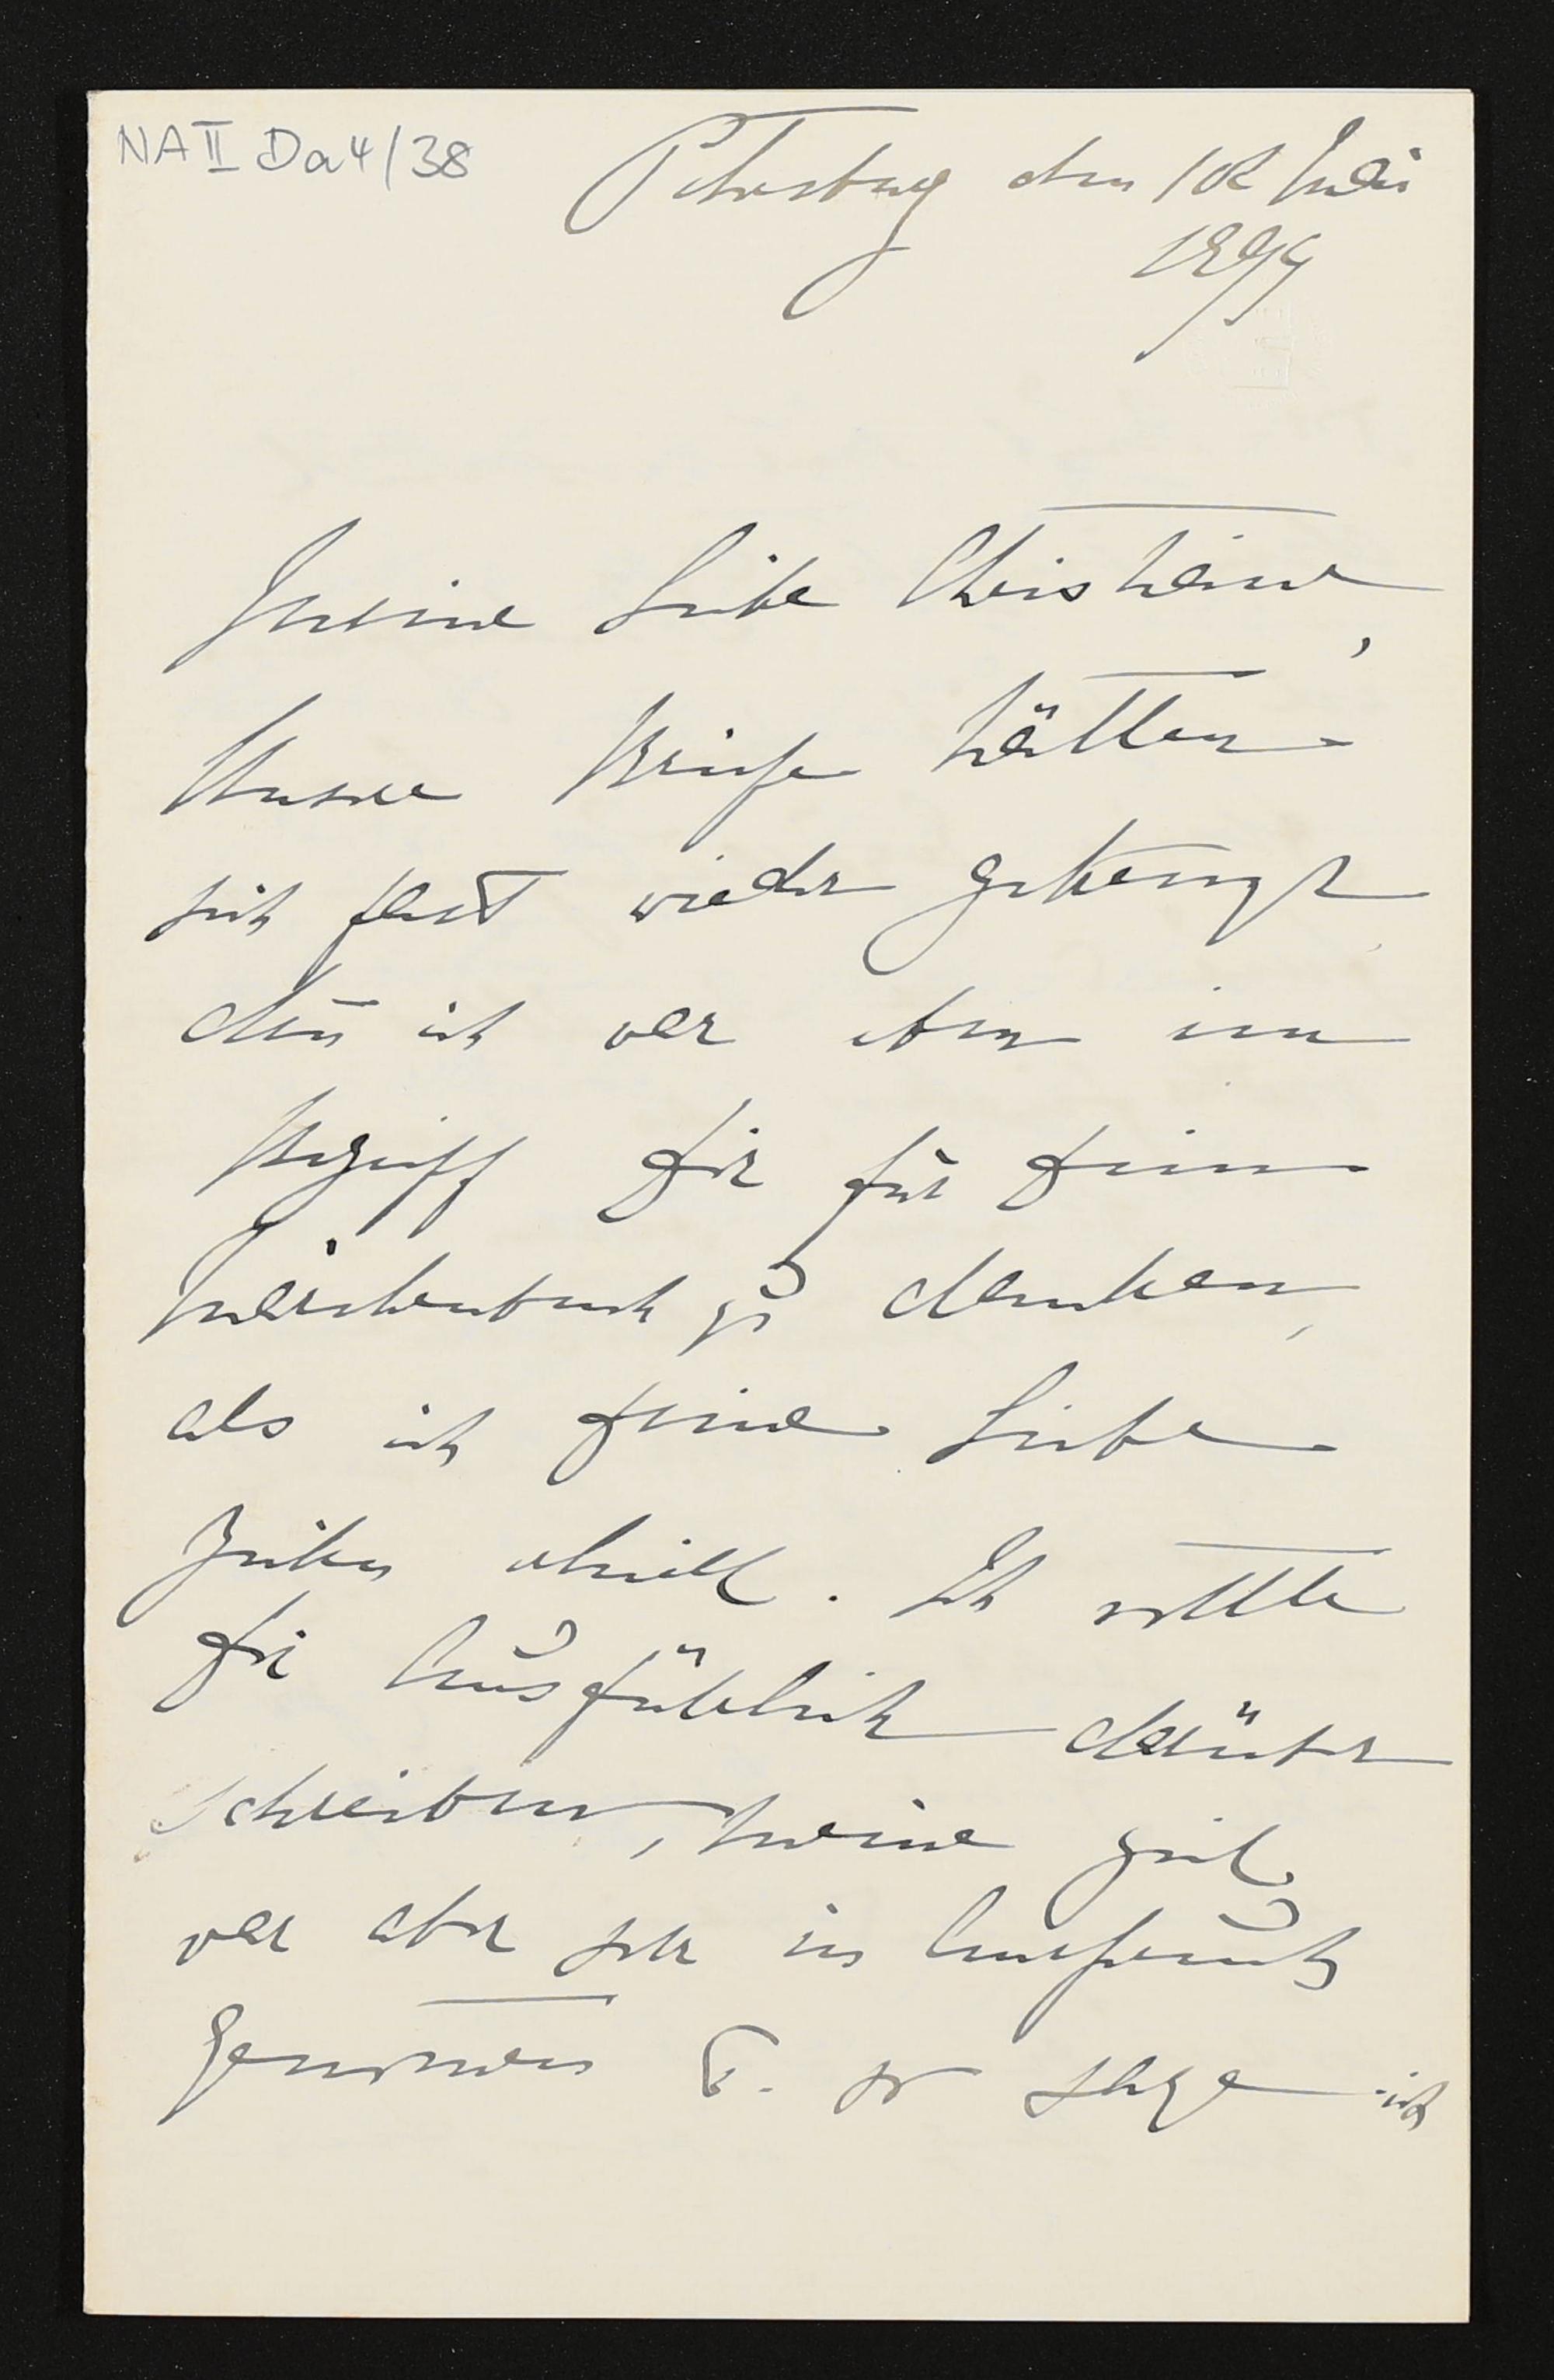 NA II Da 4/38
Petersburg den 12 Mai
1899
Meine Liebe Christiane,
Unsere Briefe hätten
sich fast wieder gekreuzt,
deñ ich war eben im
Begriff Dir für Dein
Märchenbuch zu danken,
als ich Deine Lieben
Zeilen erhielt. Ich wollte
Dir Ausführlich darüber
schreiben, meine Zeit
war aber sehr in Anspruch
Genomen u. so sage ich